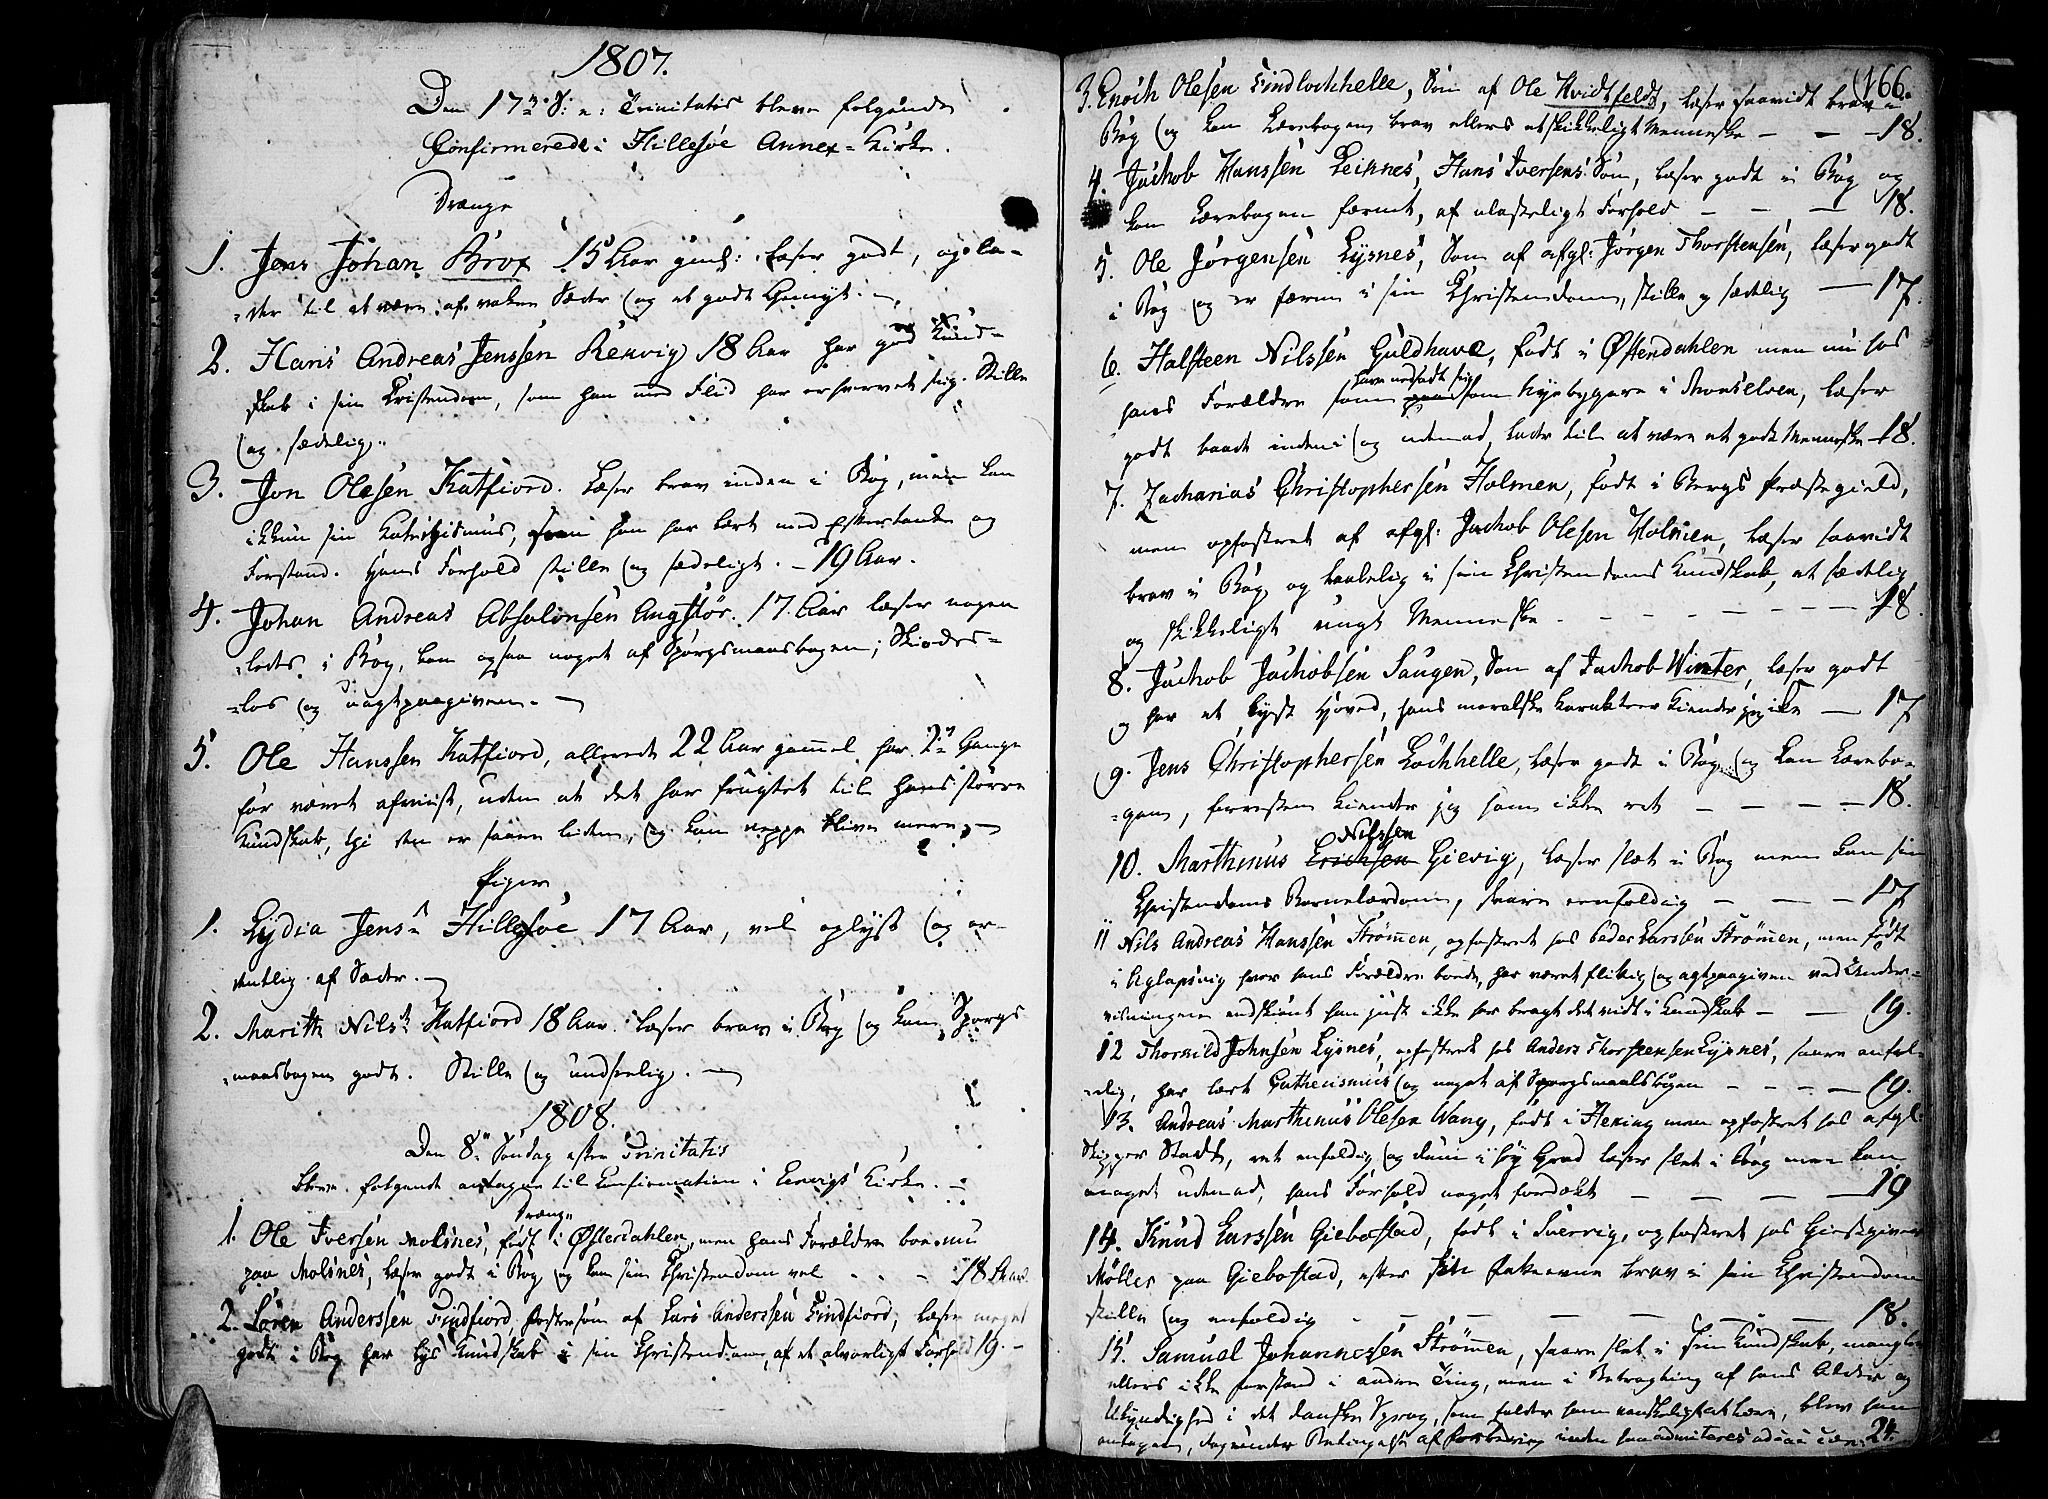 1807.
Den 17de S: e: Trinitatis bleve følgende
Confirmerede i Hillesøe Annex-Kirke.
Drænge
1. Jens Johan Brox 15 Aar gml: læser godt, og la-
-der til at være af vakre Sæder og et godt Gemyt. -
2. Hans Andreas Jenssen Rekvig 18 Aar har god Kund-
skab i sin Kristendom, som han med Flid har erhvervet sig. Stille
og sædelig.
3. Jon Olesen Katfiord. Læser brav inden i Bog, men kan
ikkun sin Katechismus, som han har lært med Eftertanke og
Forstand. Hans Forhold stille og sædeligt. - 19 Aar.
4. Johan Andreas Absalonsen Angstør. 17 Aar læser nogen
-ledes i Bog, kan ogsaa noget af Spørgsmaasbogen; Skiødes-
-løs og uagtpaagiven. -
5. Ole Hanssen Katfiord, allerede 22 Aar gammel har 2de Gange
før været afviist, uden at det har frugtet til hans større
Kundskab, thi den er saare liden, og kan neppe blive mere. -
Piger
1. Lydia Jensd Hillesøe 17 Aar, vel oplyst og or-
dentlig af Sæder. -
2. Marith Nilsd Katfiord 18 Aar. læser brav i Bog og kan Spørgs
-maasbogen godt. Stille og undseelig. -
1808.
Den 8de Søndag efter Trinitatis
bleve følgende antagne til Confirmation i Lenvigs Kirke. -
Drænge
1. Ole Iversen Molsnes, født i Østerdahlen, men hans Forældre boe nu
paa Molsnes, læser godt i Bog og kan sin Christendom vel - - - 18 Aar.
2. Søren Anderssen Findfiord Fostersøn af Lars Anderssen Findfiord, læser meget
godt i Bog har lys Kundskab i sin Christendom, af et alvorligt Forhold 19. -
166.
3. Enoch Olesen Findlochhelle, Søn af Ole Hvidtfeldt, læser saavidt brav i
Bog og kan Lærebogen brav ellers et skikkeligt Menneske - - - 18.
4. Jachob Hanssen Leiknes, Hans Iversens Søn, læser godt i Bog og
kan Lærebogen færmt, af ulasteligt Forhold - - - 18.
5. Ole Jørgensen Lysnes, Søn af afgl: Jørgen Thorstensen, læser godt
i Bog og er færm i sin Christendom, stille og sædelig - 17.
6. Halsteen Nilssen Guldhave, født i Østerdahlen men nu hos
have nedsadt sig
hans Forældre som som Nyebyggere i Maaselven, læser
godt baade inden i og udenad, lader til at være et godt Menneske - 18.
7. Zacharias Christophersen Holmen, født i Bergs Præstegield,
men opfostret af afgl: Jachob Olesen Holmen, læser saavidt
brav i Bog og taalelig i sin Christendoms Kundskab, et sædelig
og skikkeligt ungt Menneske. - - - - - - - 18.
8. Jachob Jachobsen Saugen, Søn af Jachob Winter, læser godt
og har et lyst Hoved, hans moralske Karakteer kiender jeg ikke - 17
9. Jens Christophersen Lochhelle, læser godt i Bog og kan Lærebo-
-gen, forresten kiender jeg ham ikke ret - - - - 18.
Nilssen
10. Marthinus Erichsen Gievig, læser slæt i Bog men kan sin
Christendoms Børnelærdom, saare eenfoldig - - - 17
11 Nils Andreas Hanssen Strømmen, opfostret hos Peder Larssen Strømmen, men født
i Aglapsvig hvor hans Forældre boede, har været flittig og agtpaagiven ved Under-
visningen endskiønt han just ikke har bragt det vidt i Kundskab - - 19.
12 Thorkild Johnsen Lysnes, opfostret hos Anders Thorsteensen Lysnes, saare enfol-
-dig, har lært Cathecismus og noget af Spørgsmaalsbogen - - - - 19.
13. Andreas Marthinus Olesen Wang, født i Heking men opfostret hos afgl:
Skipper Stadt, ret enfoldig og dum i høy Grad læser slet i Bog men kan
meget udenad, hans Forhold noget fordækt - - - - 19
14. Knud Larssen Giebostad, født i Svervig, opfostret hos Giestgiver
Møller paa Giebostad, efter sin Fatteevne brav i sin Christendom
stille og enfoldig - - - - - - 18.
15. Samuel Johannessen Strømmen, saare slet i sin Kundskab, mangler
ellers ikke Forstand i andre Ting, men i Betragtning af hans Alder og
Ukyndighed i det danske Sprog, som falder ham vanskeligt at lære, blev han
antagen, dog under Betingelse af Forbedring inden han admiteres ad 24.